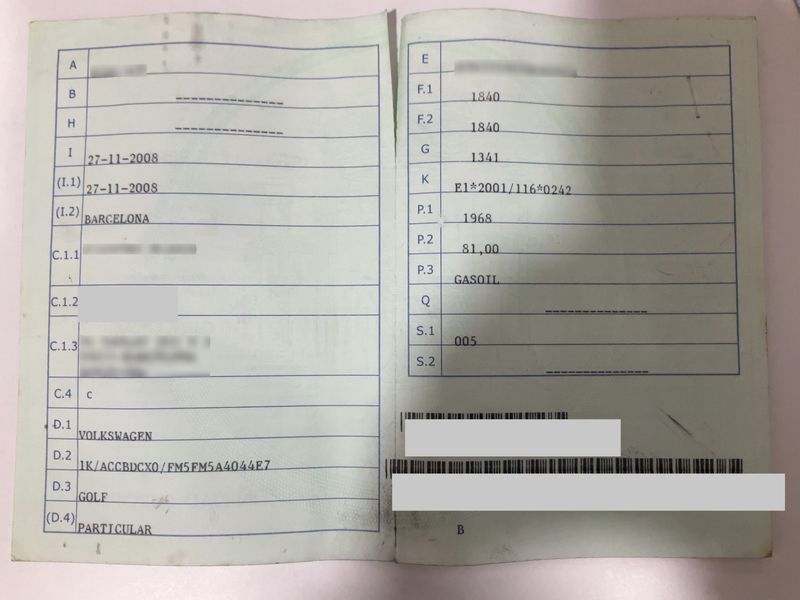 A
B ------------
H ------------
I 27-11-2008
(I.1) 27-11-2008
(I.2) BARCELONA
C.1.1
C.1.2
C.1.3
C.4 c
D.1 VOLKSWAGEN
D.2 1K/ACCBDCX0/FM5FM5A4044E7
D.3 GOLF
(D.4) PARTICULAR
E
F.1 1840
F.2 1840
G 1341
K E1*2001/116*0242
P.1 1968
P.2 81,00
P.3 GASOIL
Q ------------
S.1 005
S.2 ------------
B